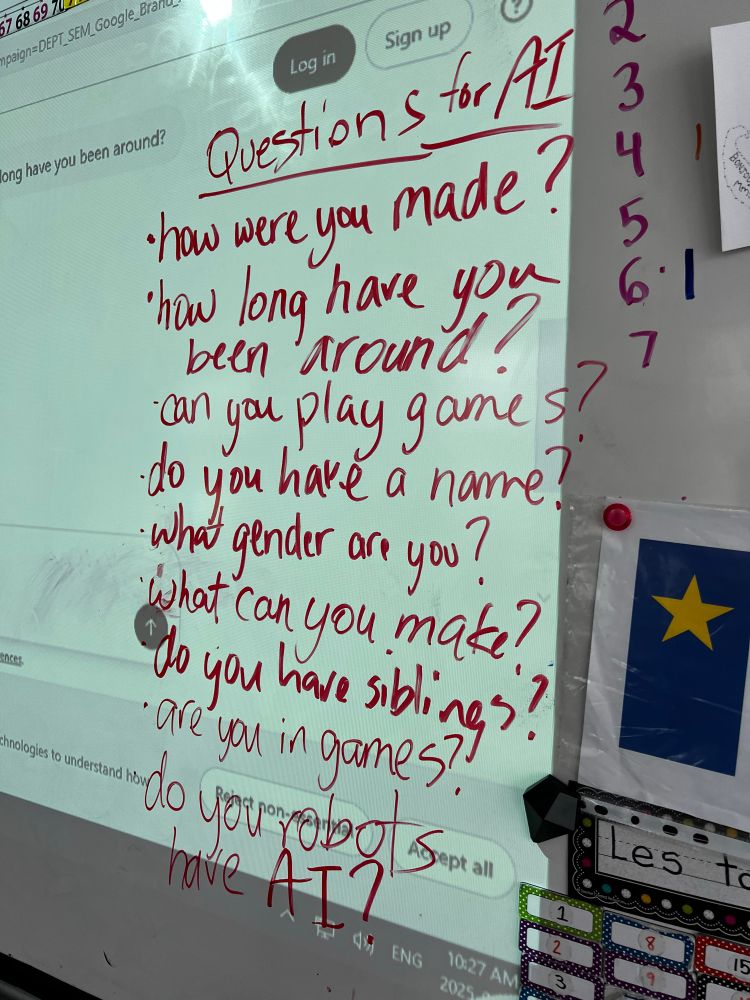 67 68 69
mpaign=DEPT_SEM_Google_Brand_
?
Log in
Sign up
long have you been around?
Questions for AI
• how were you made?
• how long have you
been around?
• can you play games?
• do you have a name?
• what gender are you?
• what can you make?
↑
• do you have siblings?
• are you in games?
ences.
chnologies to understand how
do you robots
have AI?
Reject non-essential
Accept all
ENG
10:27 AM
2025-
2
3
4
5
6
7
Les
1
2
3
8
9
15